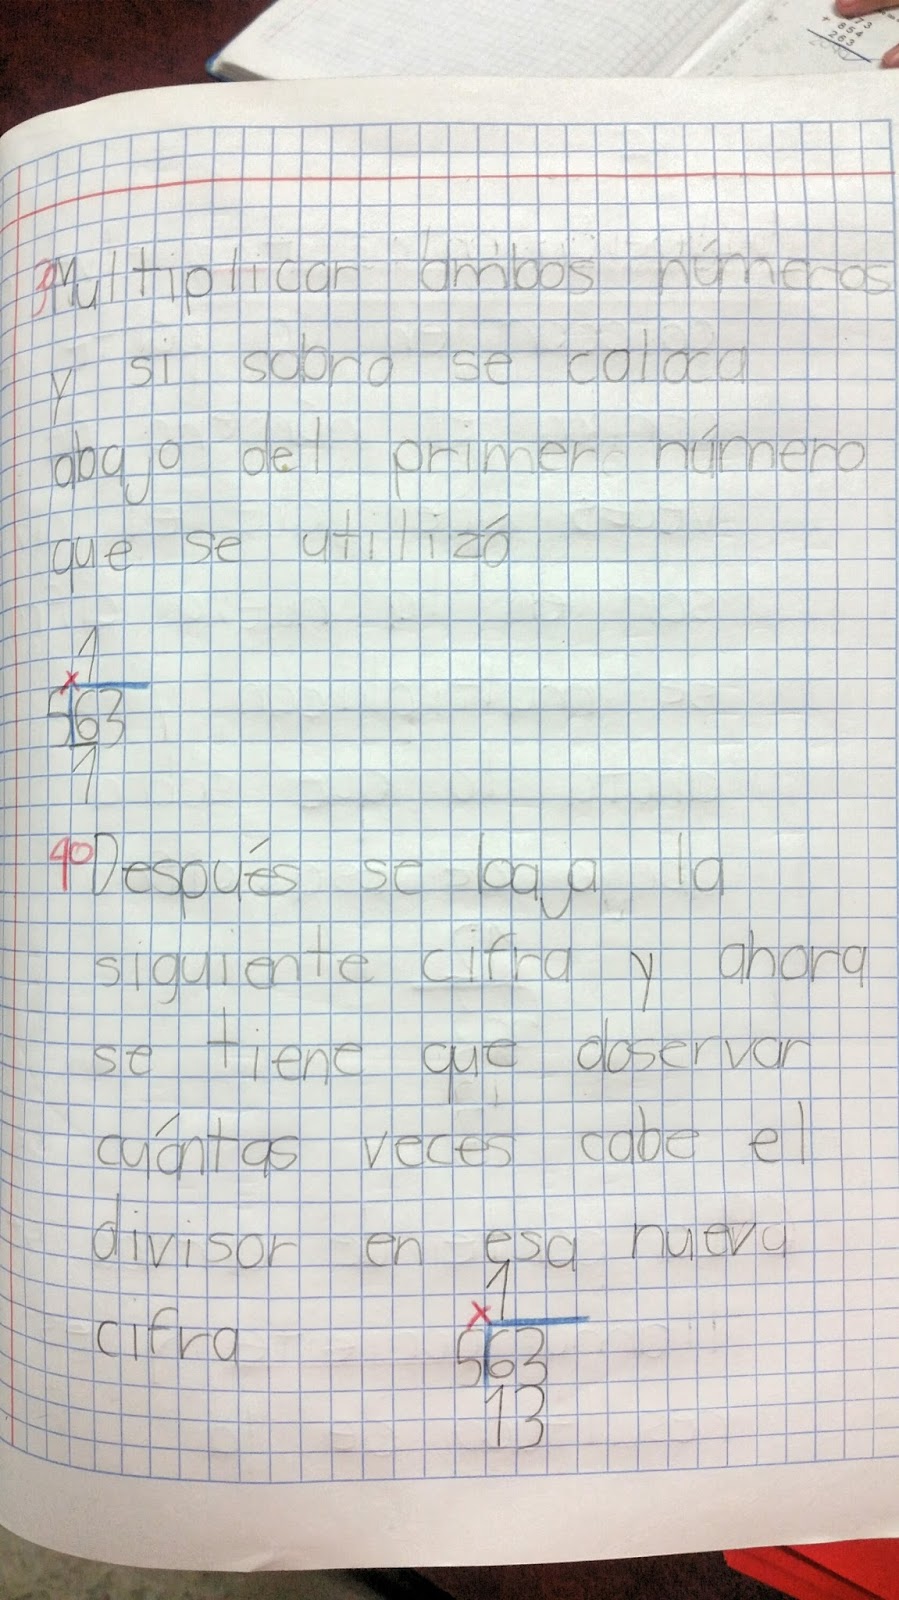 73
+ 854
263
3º Multiplicar ambos números
y si sobra se coloca
abajo del primer número
que se utilizó
1
x
563
1
4º Después se baja la
siguiente cifra y ahora
se tiene que observar
cuántas veces cabe el
divisor en esa nueva
cifra
1
x
563
13